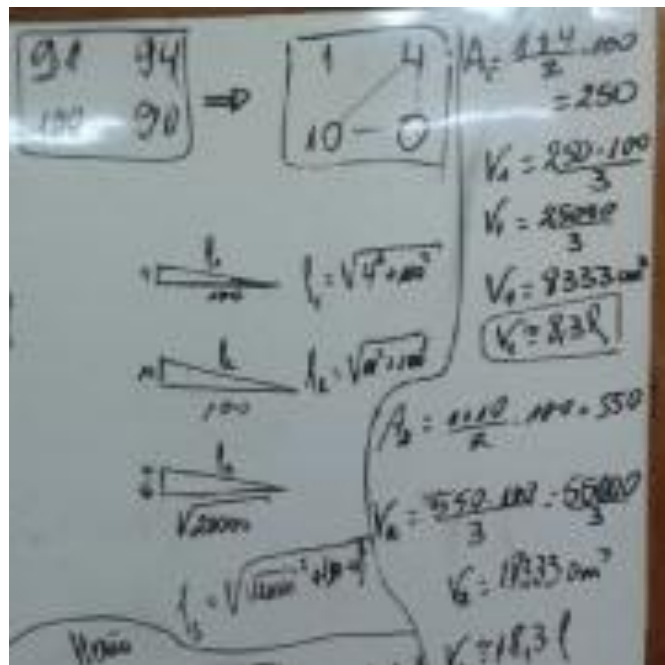 91 94
100 90
⇒
1 4
10 0
l₁
100
l₁ = √4² + 100²
l₂
100
l₂ = √10² + 100²
l₃
√20000
l₃ = √
A₁ = 1+4/2 · 100
= 250
V₁ = 250 · 100/3
V₁ = 25000/3
V₁ = 8333 cm³
V₁ ≈ 8,3 l
A₂ = 1+10/2 · 100 = 550
V₂ = 550 · 100/3 = 55000/3
V₂ = 18333 cm³
V₂ ≈ 18,3 l